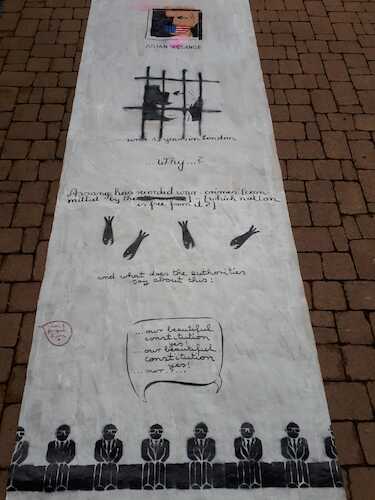 JULIAN ASSANGE
London
...Why...?
Assange has revealed war crimes (com
mitted by the [which nation
is free from it?]
and what does the authorities
say about this:
...our beautiful
constitution
yes!
...our beautiful
constitution
yes!
...our